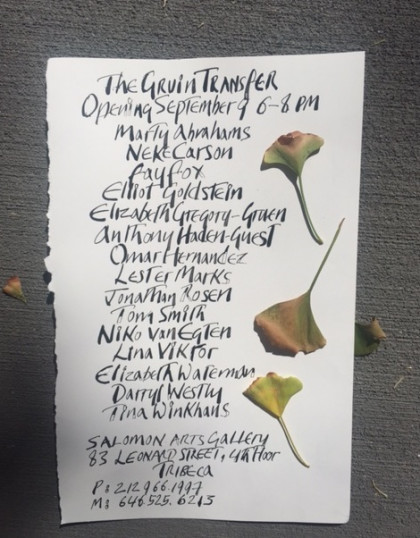 The Gruin Transfer
Opening September 9 6-8 PM
Marty Abrahams
Neke Carson
Fay Fox
Elliot Goldstein
Elizabeth Gregory-Gruen
Anthony Haden-Guest
Omar Hernandez
Lester Marks
Jonathan Rosen
Tom Smith
Niko Van Egten
Lina Viktor
Elizabeth Waterman
Darryl Westly
Tina Winkhaus
SALOMON ARTS Gallery
83 LEONARD STREET, 4th Floor
TRIBECA
P: 212.966.1997
M: 646.525.6213